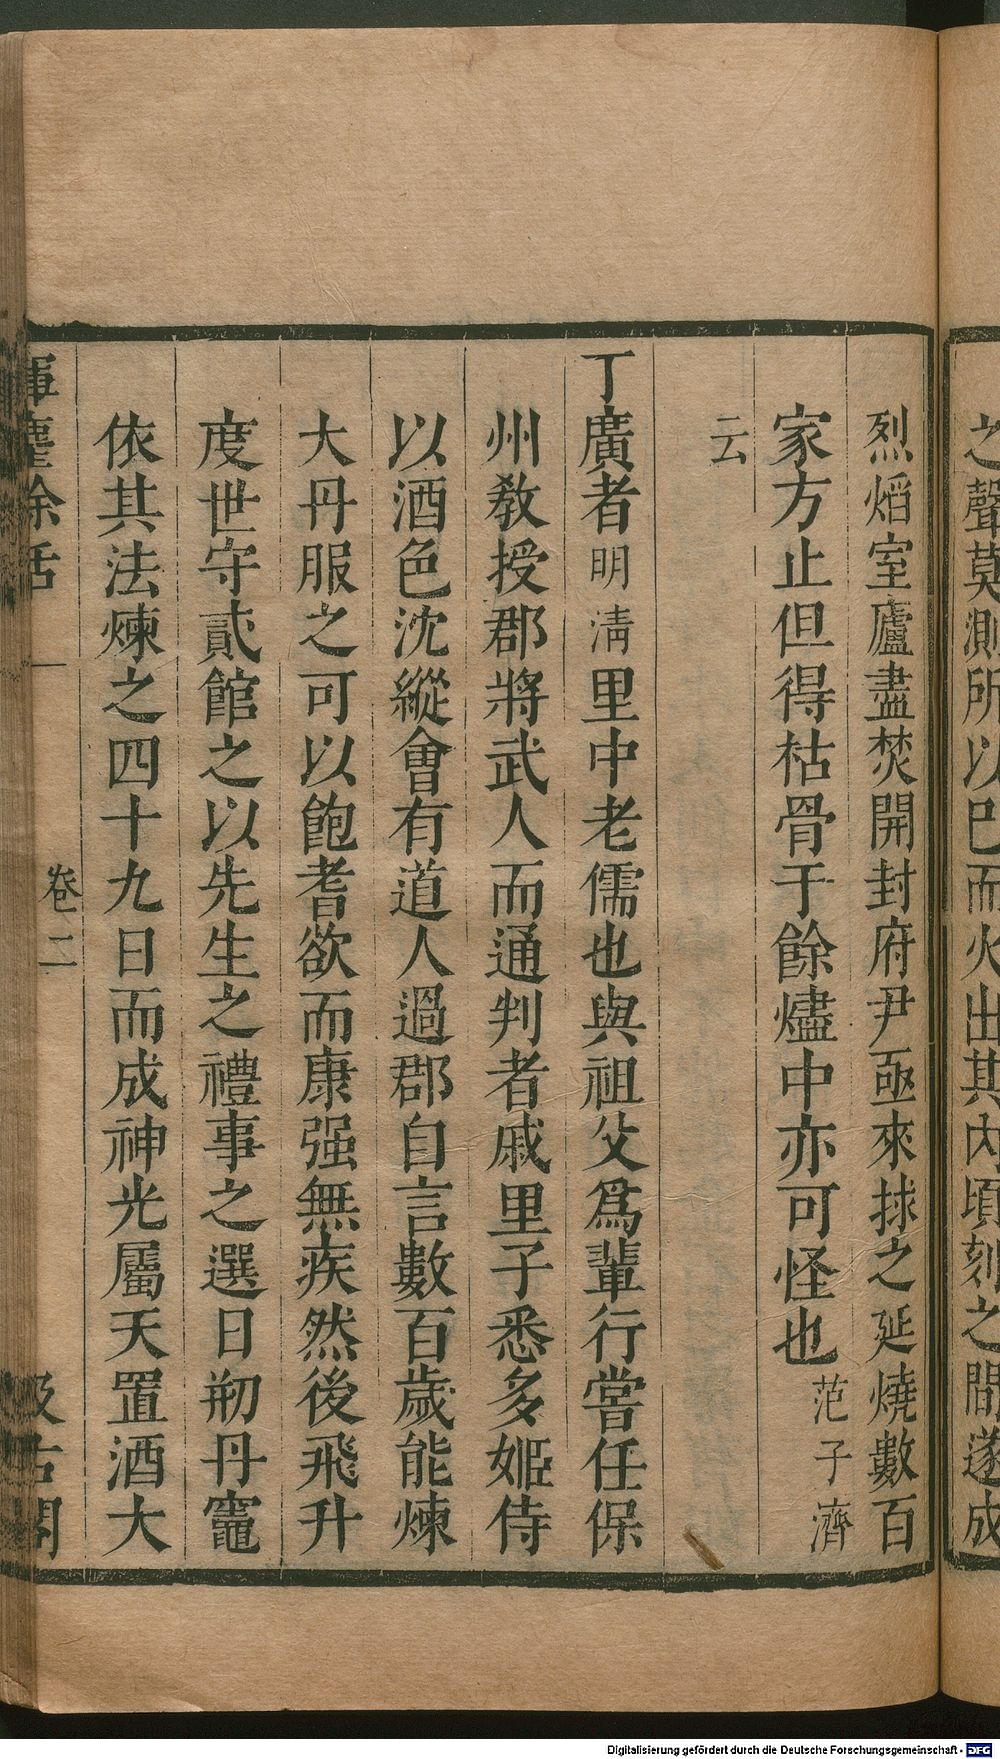 之聲莫測所以巳而火出其內頃刻之間遂成
烈熖室廬盡焚開封府尹亟來捄之延燒數百
家方止但得枯骨于餘燼中亦可怪也范子濟
云
丁廣者明清里中老儒也與祖父爲輩行嘗任保
州敎授郡將武人而通判者戚里子悉多姬侍
以酒色沈縱會有道人過郡自言數百歲能煉
大丹服之可以飽耆欲而康强無疾然後飛升
度世守貳館之以先生之禮事之選日剏丹竈
依其法煉之四十九日而成神光屬天置酒大
揮麈餘話 卷二 汲古閣
Digitalisierung gefördert durch die Deutsche Forschungsgemeinschaft - DFG